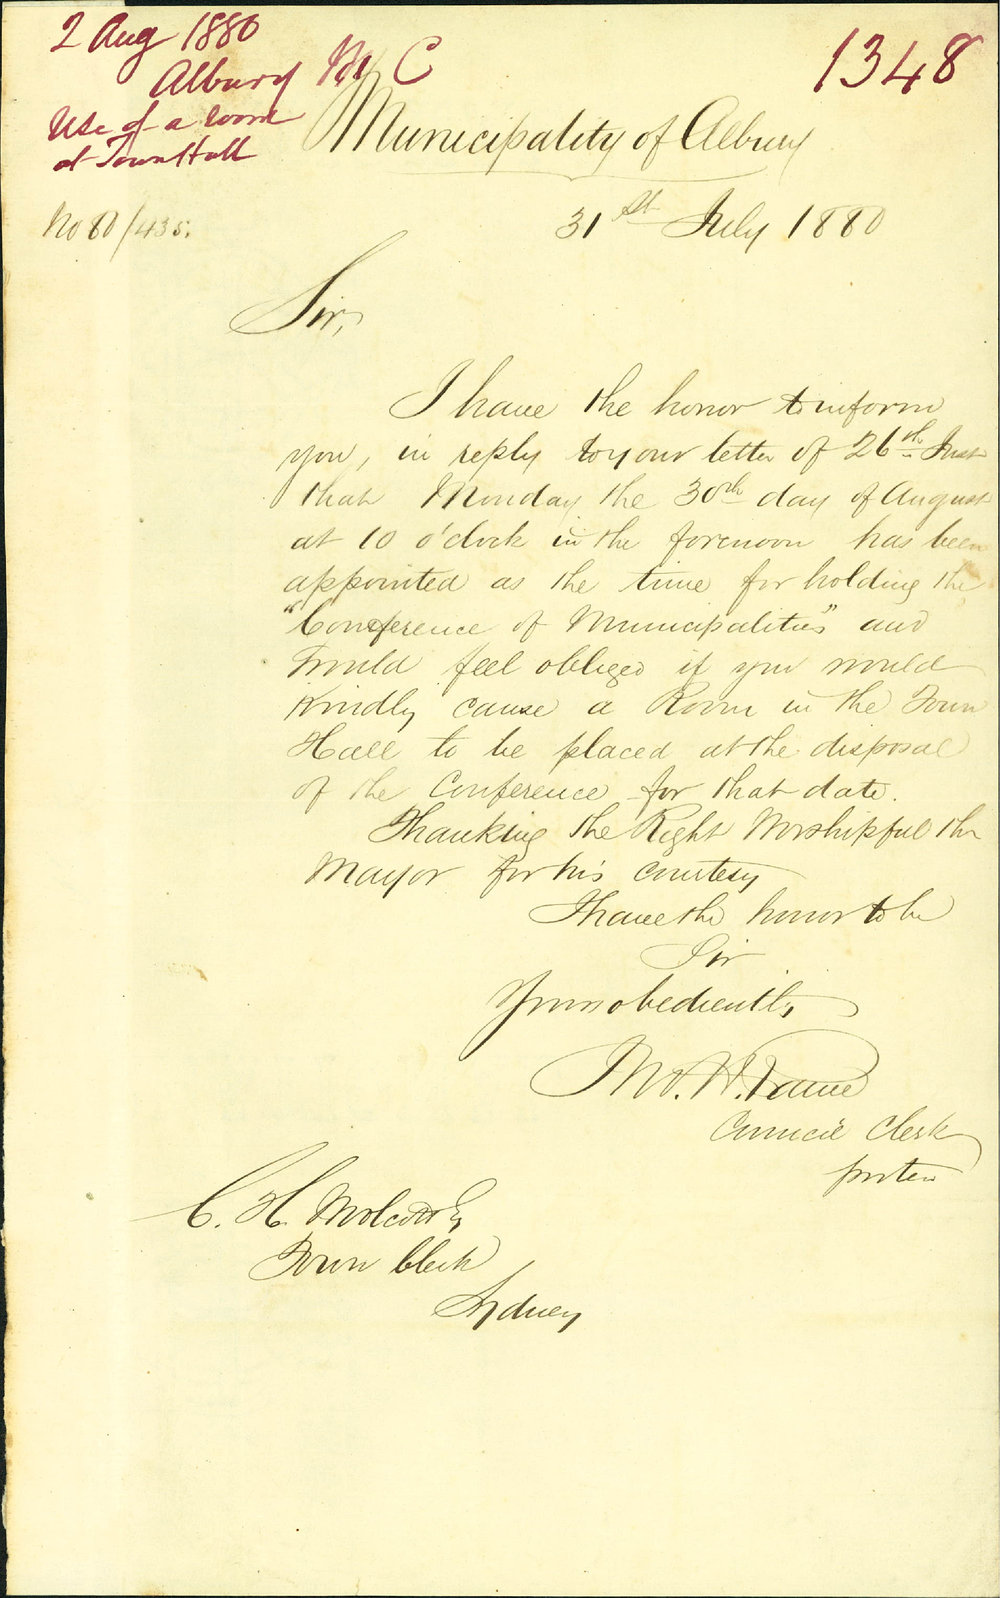 2 Aug 1880
Albury M C
Use of a room
at Town Hall
1348
Municipality of Albury
No 80/435.
31st July 1880
Sir,
I have the honor to inform
you, in reply to your letter of 26th Inst
that Monday the 30th day of August
at 10 o'clock in the forenoon has been
appointed as the time for holding the
"Conference of Municipalities" and
would feel obliged if you would
kindly cause a Room in the Town
Hall to be placed at the disposal
of the Conference for that date.
Thanking the Right Worshipful the
Mayor for his courtesy
I have the honor to be
Sir
Yours obediently
Council Clerk
pro tem
C. H. Wolcott Esq
Town Clerk
Sydney